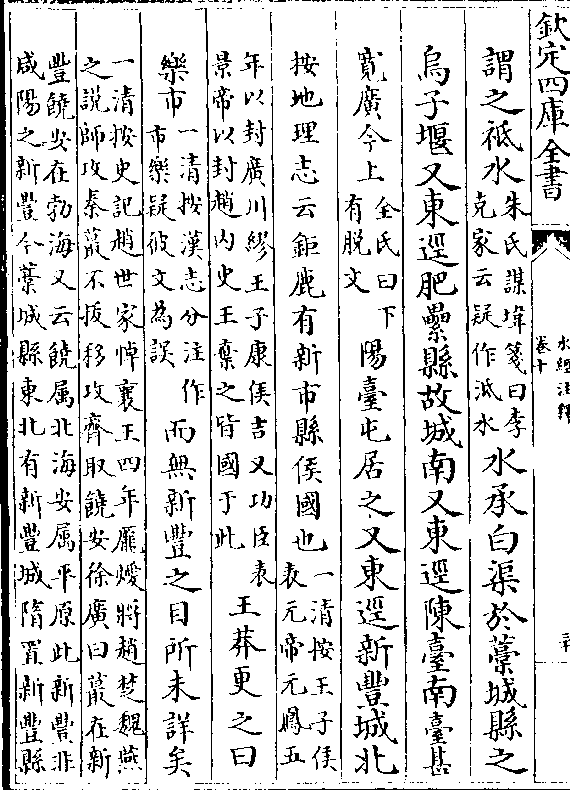 欽定四庫全書
水經注釋
卷十
謂之祗水朱氏謀㙔箋曰李克家云疑作泜水水承白渠於藁城縣之
烏子堰又東逕肥纍縣故城南又東逕陳臺南臺甚
寬廣今上全氏曰下有脫文陽臺屯居之又東逕新豐城北
按地理志云鉅鹿有新市縣侯國也一清按王子侯表元帝元鳳五
年以封廣川繆王子康侯吉又功臣表景帝以封趙内史王棄之皆國于此王莽更之曰
樂市一清按漢志分注作市樂疑彼文為誤而無新豐之目所未詳矣
一清按史記趙世家悼襄王四年龐煖將趙楚魏燕
之說師攻秦蕞不拔移攻齊取饒安徐廣曰蕞在新
豐饒安在勃海又云饒属北海安属平原此新豐非
咸陽之新豐今藁城縣東北有新豐城隋置新豐縣